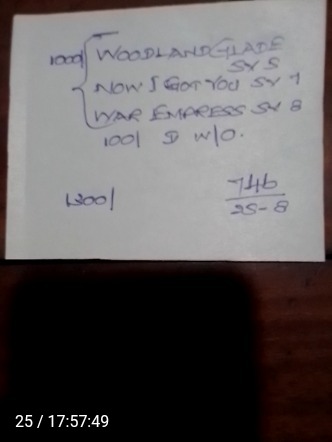 1000/ WOODLAND GLADE
SV 5
NOW I GOT YOU SV 1
WAR EMPRESS SV 8
100/ D W/O.
1300/
746
25-8
25 / 17:57:49